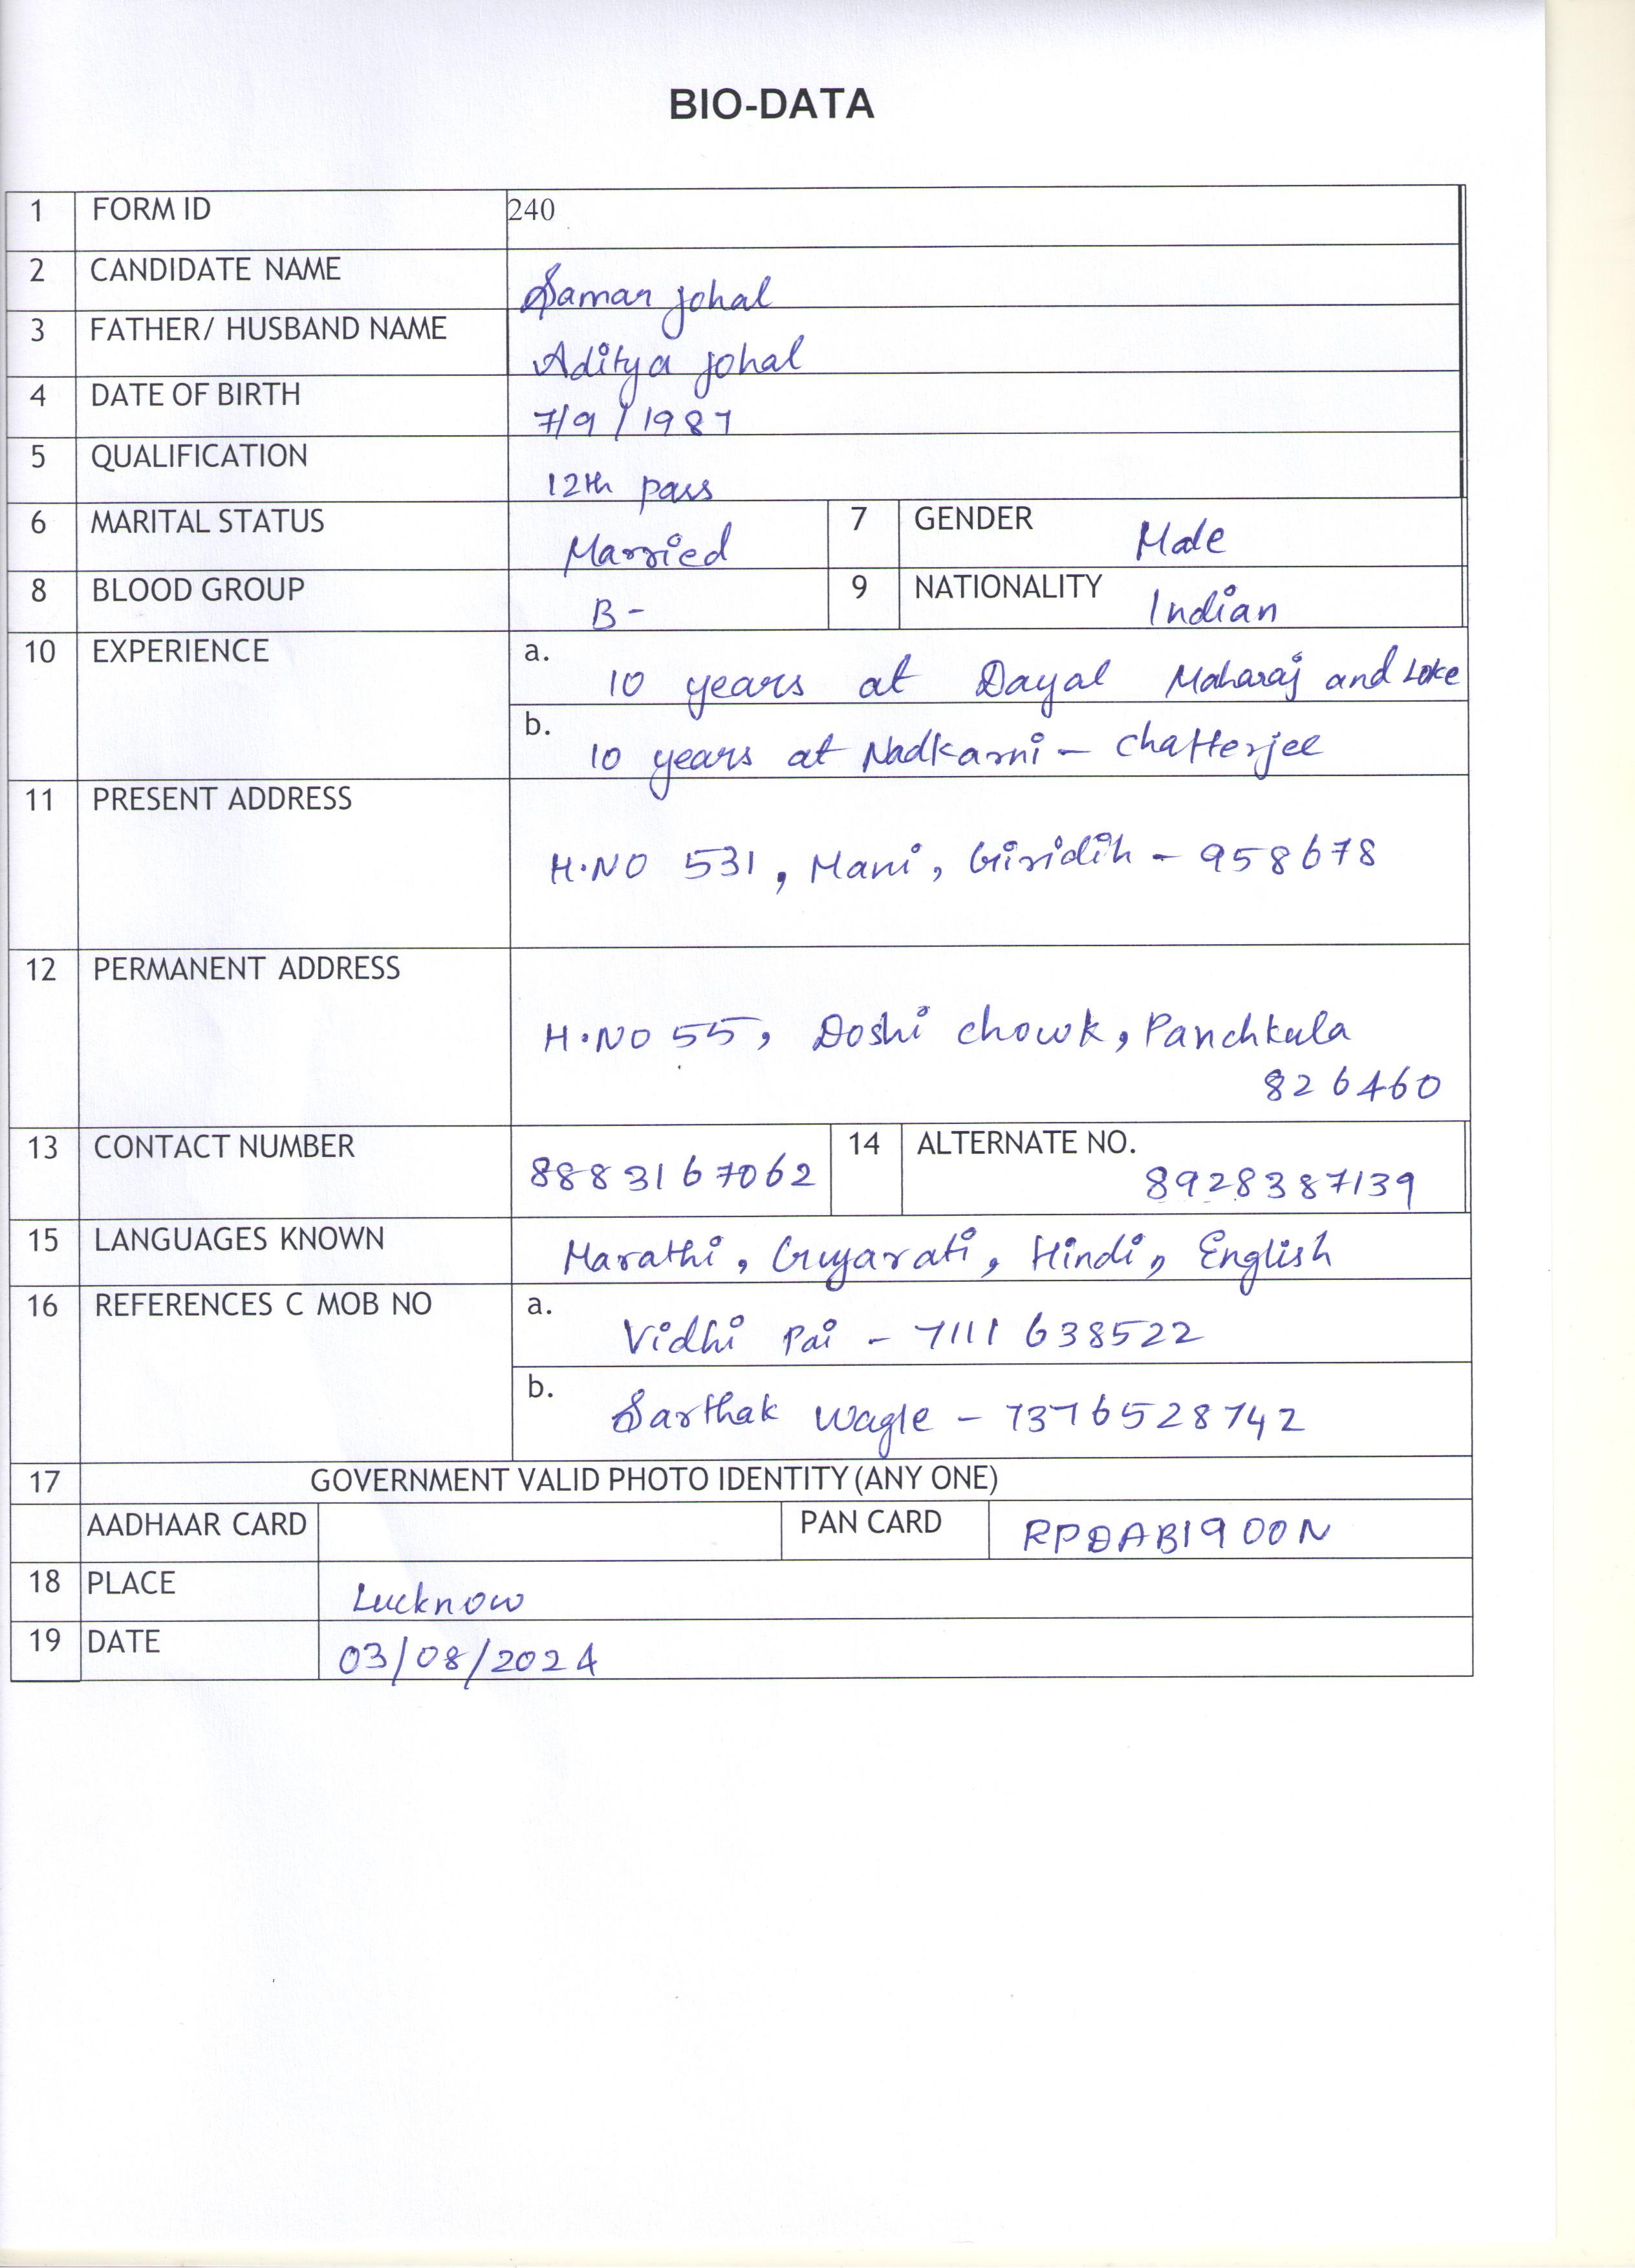 BIO-DATA
1 FORM ID 240
2 CANDIDATE NAME Samar Johal
3 FATHER/ HUSBAND NAME Aditya Johal
4 DATE OF BIRTH 7/9/1987
5 QUALIFICATION 12th pass
6 MARITAL STATUS Married 7 GENDER Male
8 BLOOD GROUP B- 9 NATIONALITY Indian
10 EXPERIENCE a. 10 years at Dayal Maharaj and Loke
b. 10 years at Nadkarni - Chatterjee
11 PRESENT ADDRESS
H.NO 531, Mani, Giridih - 958678
12 PERMANENT ADDRESS
H.NO 55, Doshi chowk, Panchkula
826460
13 CONTACT NUMBER 8883167062 14 ALTERNATE NO. 8928387139
15 LANGUAGES KNOWN Marathi, Gujarati, Hindi, English
16 REFERENCES C MOB NO a. Vidhi Pai - 7111638522
b. Sarthak Wagle - 7376528742
17 GOVERNMENT VALID PHOTO IDENTITY (ANY ONE)
AADHAAR CARD PAN CARD RPDAB1900N
18 PLACE Lucknow
19 DATE 03/08/2024